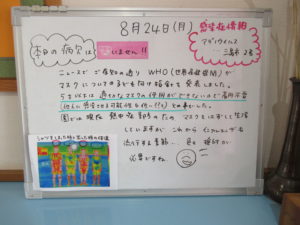 8月24日(月)
本日の病欠は
いません!!
感染症情報
アデノウイルス
2名
ニュースで ご存知の通り WHO(世界保健機関)が
マスクについての子ども向け指針を発表しました。
5才以下は 適切なマスクの使用ができないので着用不要
他人に感染させる可能性も低い(?)との事でした。
園では現在 熱中症予防のため マスクをはずして生活
していますが これから インフルエンザも
流行する季節…
必要ですね